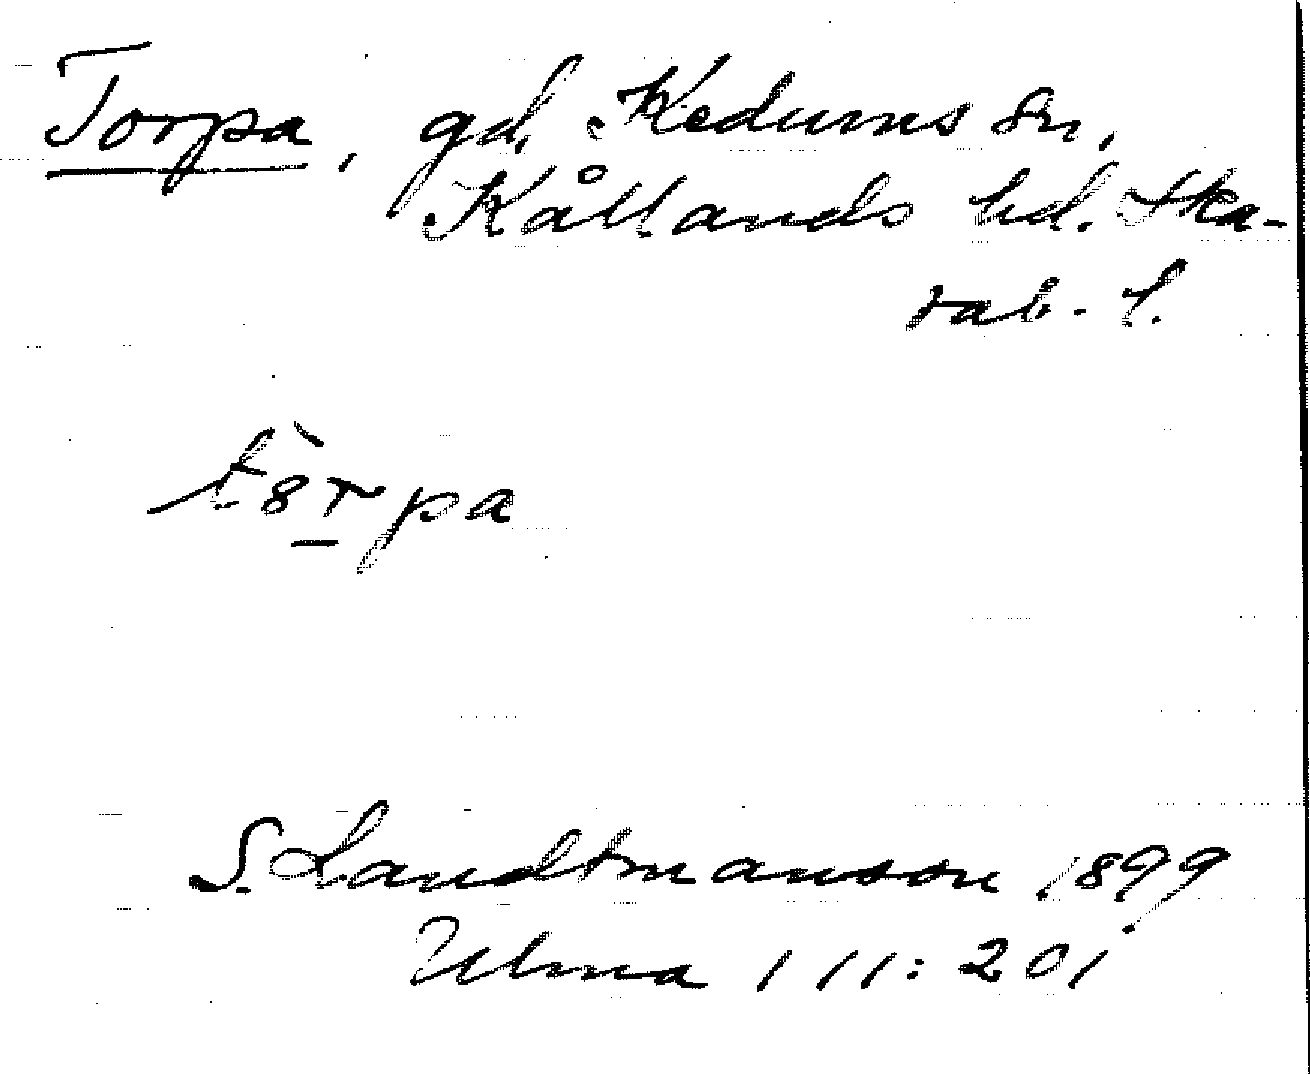 Torpa, gd, Kedums sn,
Kållands hd. Ska-
rab. l.
t8̀r̲pa
S. Landtmanson 1899
Ulma 111:201